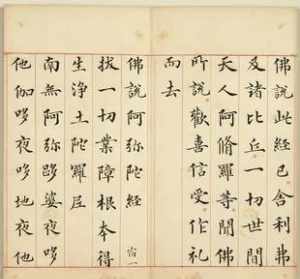 佛說此經已舍利弗
及諸比丘一切世間
天人阿脩羅等聞佛
所說歡喜信受作礼
而去
佛說阿弥陀經
拔一切業障根夲得
生淨土陀羅尼
南無阿弥哆婆夜哆
他伽哆夜哆地夜他